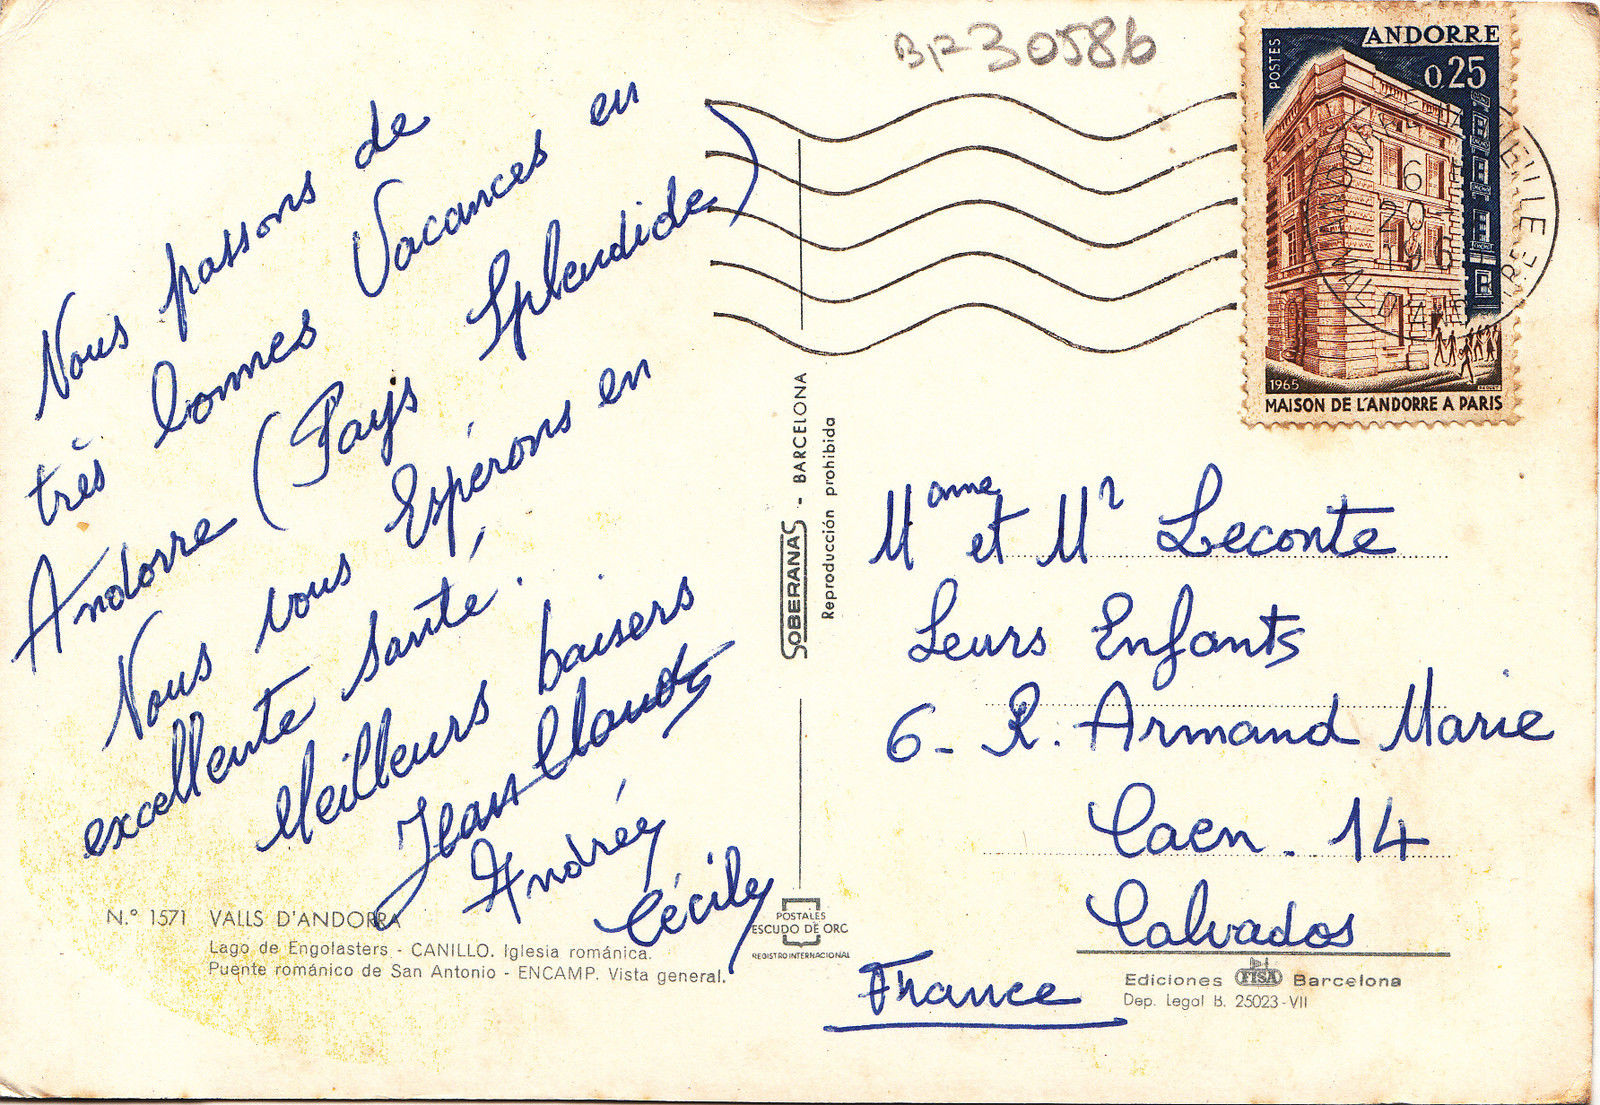 BF30586
Nous passons de
très bonnes Vacances en
Andorre (Pays Splendide)
Nous vous Espérons en
excellente santé.
Meilleurs baisers
Jean Claude
Andrée
Cécile
N.º 1571 VALLS D'ANDORRA
Lago de Engolasters - CANILLO. Iglesia románica.
Puente románico de San Antonio - ENCAMP. Vista general.
SOBERANAS - BARCELONA
Reproducción prohibida
POSTALES
ESCUDO DE ORO
REGISTRO INTERNACIONAL
POSTES
ANDORRE
0,25
1965
MAISON DE L'ANDORRE A PARIS
ANDORRE LA VIEILLE
VAL D'ANDORRE
Mame et Mr Leconte
Leurs Enfants
6 - R. Armand Marie
Caen - 14
Calvados
France
Ediciones FISA Barcelona
Dep. Legal B. 25023-VII